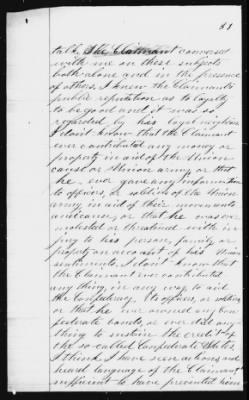 talk. The Claimant conversed
with me on these subjects
both alone and in the presence
of others. I knew the Claimants
public reputation as to loyalty
to be good and it was so
regarded by his loyal neighbors
I don't know that the Claimant
ever contributed any money or
property in aid of the Union
cause or Union army or that
he ever gave any information
to officers, or soldiers of the Union
army in aid of their movements
and cause, or that he was ever
molested or threatened with in
jury to his person, family, or
property on account of his Union
sentiments. I don't know that
the Claimant ever contributed
any thing, in any way to aid
the Confederacy, its officers, or soldiers
or that he ever owned any Con
federate bonds, or ever did any
thing to sustain the credit of
the so-called Confederate States.
I think I have seen actions and
heard language of the Claimant
sufficient to have prevented him